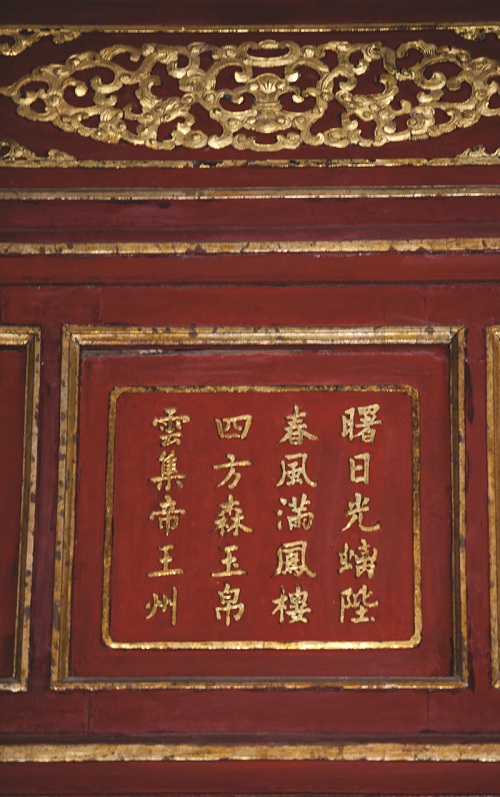 曙日光螭陛
春風滿鳳樓
四方森玉帛
雲集帝王州